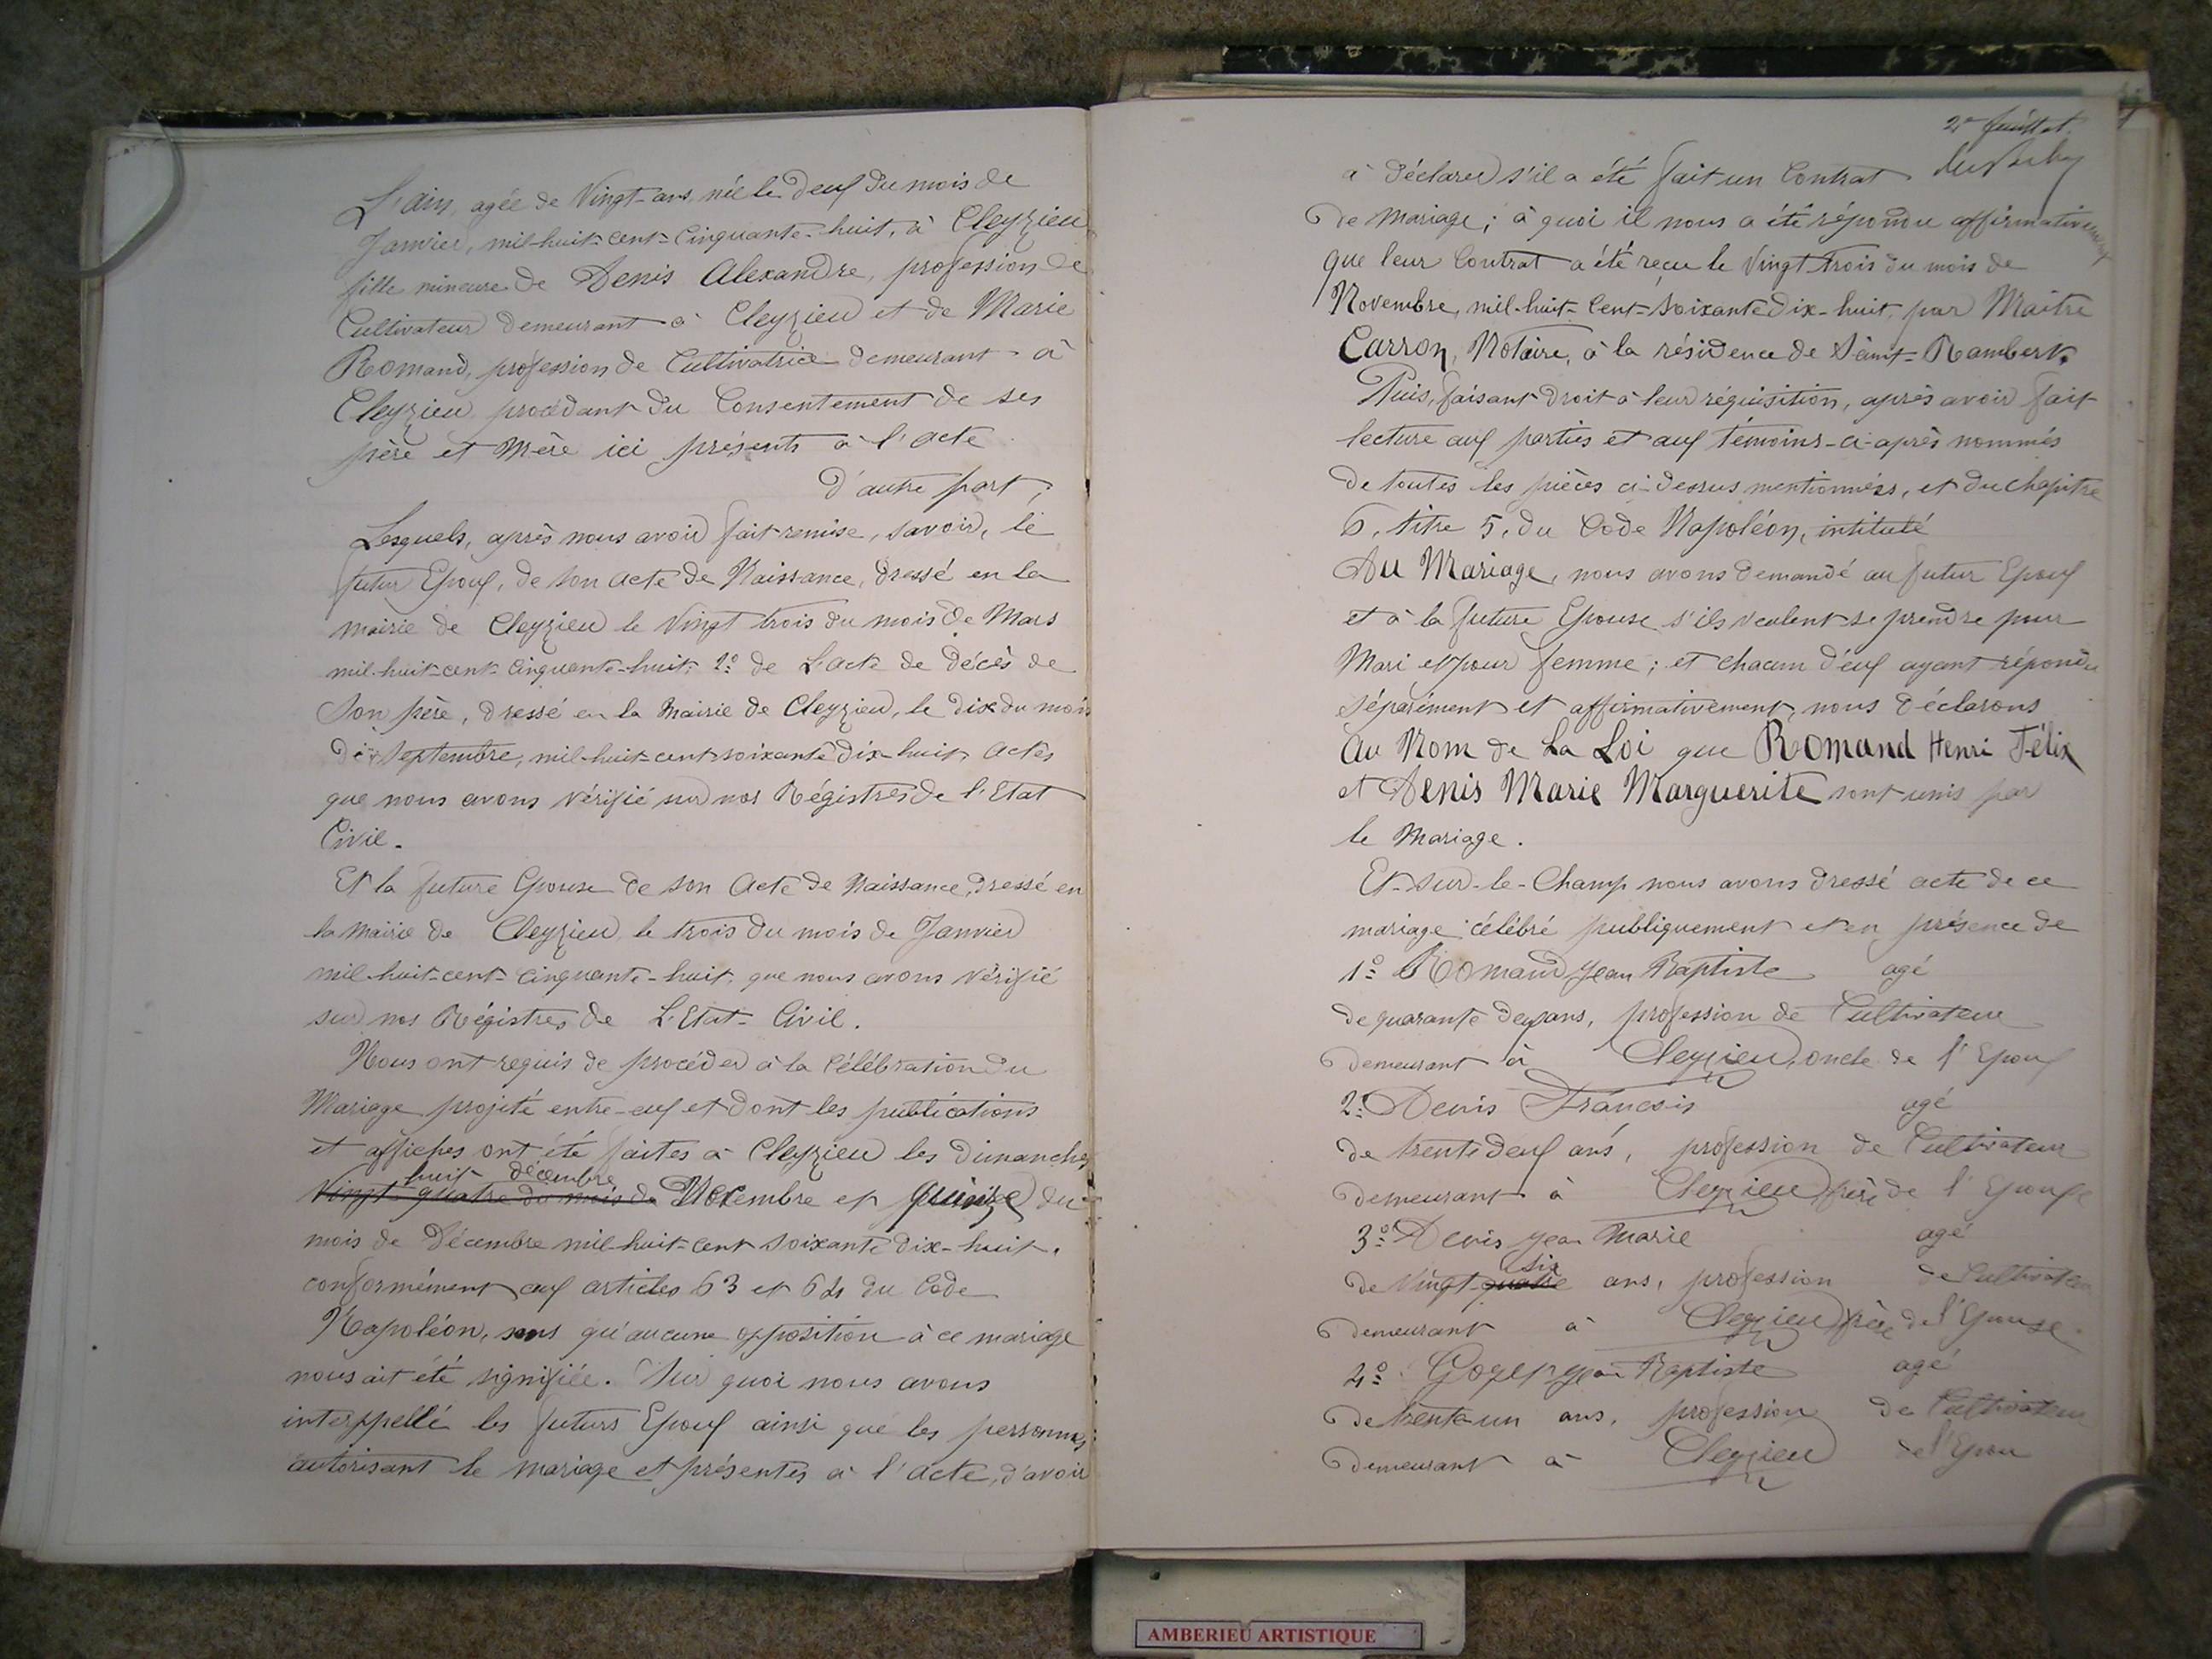 L'ain, agée de Vingt-ans, née le deux du mois de
Janvier, mil-huit-cent-Cinquante-huit, à Cleyzieu
fille mineure de Denis Alexandre, profession de
Cultivateur demeurant à Cleyzieu et de Marie
Romand, profession de Cultivatrice demeurant à
Cleyzieu procédant du Consentement de ses
père et Mère ici présents à l'acte
D'autre part,
Lesquels, après nous avoir fait remise, savoir, le
futur Epoux, de son acte de Naissance, dressé en la
mairie de Cleyzieu le Vingt trois du mois de Mars
mil-huit-cent-Cinquante-huit, 2º de L'acte de décès de
Son père, dressé en la Mairie de Cleyzieu, le dix du mois
de Septembre, mil-huit-cent-soixante dix-huit, actes
que nous avons vérifié sur nos Régistres de l'Etat
Civil.
Et la future Epouse de son Acte de Naissance, dressé en
la Mairie de Cleyzieu, le trois du mois de Janvier
mil-huit-cent-Cinquante-huit, que nous avons vérifié
sur nos Régistres de L'Etat-Civil.
Nous ont requis de procéder à la Célébration du
Mariage projeté entre-eux et dont les publications
et affiches ont été faites à Cleyzieu les Dimanches
huit décembre
Vingt-quatre du mois de Novembre et quinze du
mois de Décembre mil-huit-cent soixante dix-huit.
conformément aux articles 63 et 64 du Code
Napoléon, sans qu'aucune opposition à ce mariage
nous ait été signifiée. Sur quoi nous avons
interppellé les futurs Epoux ainsi que les personnes
autorisant le mariage et présentes à l'acte, d'avoir
2e feuillet
à déclarer s'il a été fait un Contrat
de Mariage; à quoi il nous a été répondu affirmativement
que leur Contrat a été reçu le Vingt trois du mois de
Novembre, mil-huit-Cent-soixante Dix-huit, par Maître
Carron, Notaire, à la résidence de Saint-Rambert.
Puis, faisant droit à leur réquisition, après avoir fait
lecture aux parties et aux témoins-ci-après nommés
de toutes les pièces ci-dessus mentionnées, et du chapitre
6, titre 5, du Code Napoléon, intitulé
Du Mariage, nous avons demandé au futur Epoux
et à la future Epouse s'ils veulent se prendre pour
Mari et pour femme; et chacun d'eux ayant répondu
séparément et affirmativement, nous déclarons
Au Nom de La Loi que Romand Henri Félix
et Denis Marie Marguerite sont unis par
le Mariage.
Et-sur-le-Champ nous avons dressé acte de ce
mariage célébré publiquement et en présence de
1º Romand Jean Baptiste agé
de quarante deux ans, profession de Cultivateur
demeurant à Cleyzieu, oncle de l'Epoux
2º Denis Francois agé
de trente deux ans, profession de Cultivateur
demeurant à Cleyzieu frère de l'Epouse
3º Denis Jean Marie agé
six
de Vingt quatre ans, profession de Cultivateur
demeurant à Cleyzieu frère de l'Epouse
4º Jean Baptiste agé
de trente-un ans, profession de Cultivateur
demeurant à Cleyzieu de l'Epou
AMBERIEU ARTISTIQUE